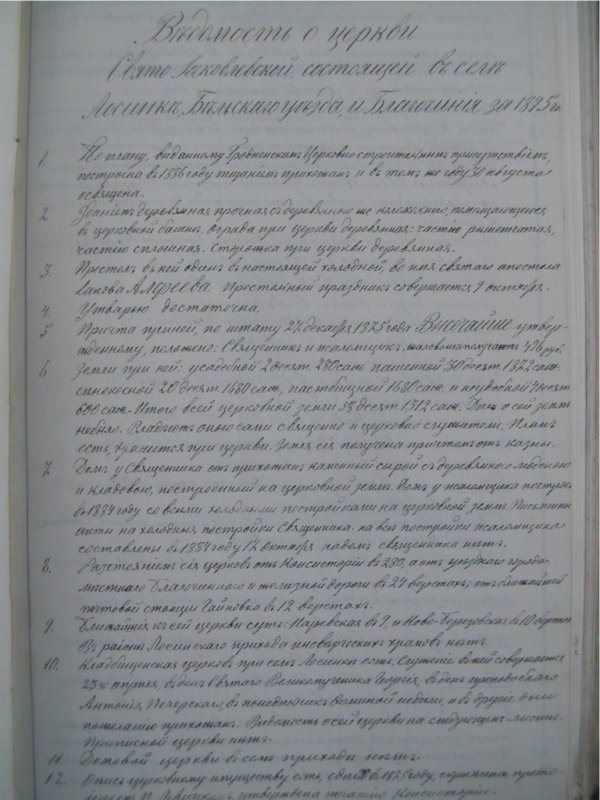 Вѣдомость о церкви
Свято Іаковлевской, состоящей въ селѣ
Лосинкѣ, Бѣльскаго уѣзда, и Благочинія за 1895 г.
1. По плану, выданному Гродненскимъ Церковно строительнымъ присутствіемъ,
построена въ 1886 году тщаніемъ прихожанъ и въ томъ же году 30 августа
освящена.
2. Зданіемъ деревянная прочная съ деревянною же колокольнею, помѣщающеюся
въ церковной башни. Ограда при церкви деревянная: частію рѣшетчатая,
частію сплошная. Сторожка при церкви деревянная.
3. Престолъ въ ней одинъ въ настоящей холодной, во имя святаго апостола
Іакова Алфеева. Престольный праздникъ совершается 9 октября.
4. Утварью достаточна.
5 Причта при ней, по штату 27 декабря 1875 года Высочайше утвер-
жденному, положено: Священникъ и псаломщикъ. жалованья получаютъ руб.
6 Земли при ней: усадебной 2 десят. 280 саж. пахатной 30 десят. 1822 саж.
сѣнокосной 20 десят. 1680 саж., пастбищной 1680 саж. и неудобной десят.
600 саж. Итого всей церковной земли десят. 1312 саж. о сей землѣ
небыло. Владѣютъ оною сами священно и церковно служители. Планъ
есть, хранится при церкви. Земля сія получена причтомъ отъ казны.
7. Домъ у Священника отъ прихожанъ каменный сырой съ деревянною людскою
и кладовою, построенный на церковной землѣ. Домъ у псаломщика построенъ
въ 1884 году со всѣми холодными постройками на церковной землѣ.
акты на холодныя постройки Священника. на всѣ постройки псаломщика
составлены въ 1884 году 14 октября на домъ священника нѣтъ.
8. Разстояніемъ сія церковь отъ Консисторіи въ 280, а отъ уѣзднаго города
мѣстнаго Благочиннаго и желѣзной дороги въ 27 верстахъ; отъ ближайшей
почтовой станціи Гайновка въ 12 верстахъ.
9. Ближайшія къ сей церкви суть: Наревская въ 9, и Ново-Березовская въ 10 верстахъ
Въ районѣ Лосинскаго прихода иновѣрческихъ храмовъ нѣтъ.
10. Кладбищенская церковь при селѣ Лосинки есть. Служеніе въ ней совершается
23го апрѣля, въ день Святаго Великомученика Георгія, въ день преподобнаго
Антонія Печерскаго, въ понедѣльникъ Фоминой недѣли, и въ другіе дни
по желанію прихожанъ. Вѣдомость о сей церкви на слѣдующемъ листѣ.
Приписной церкви нѣтъ.
11. Домовой церкви въ семъ приходѣ нѣтъ.
12. Опись церковному имуществу есть, году, скрѣплена прото-
іереемъ утверждена печатію Консисторіи.